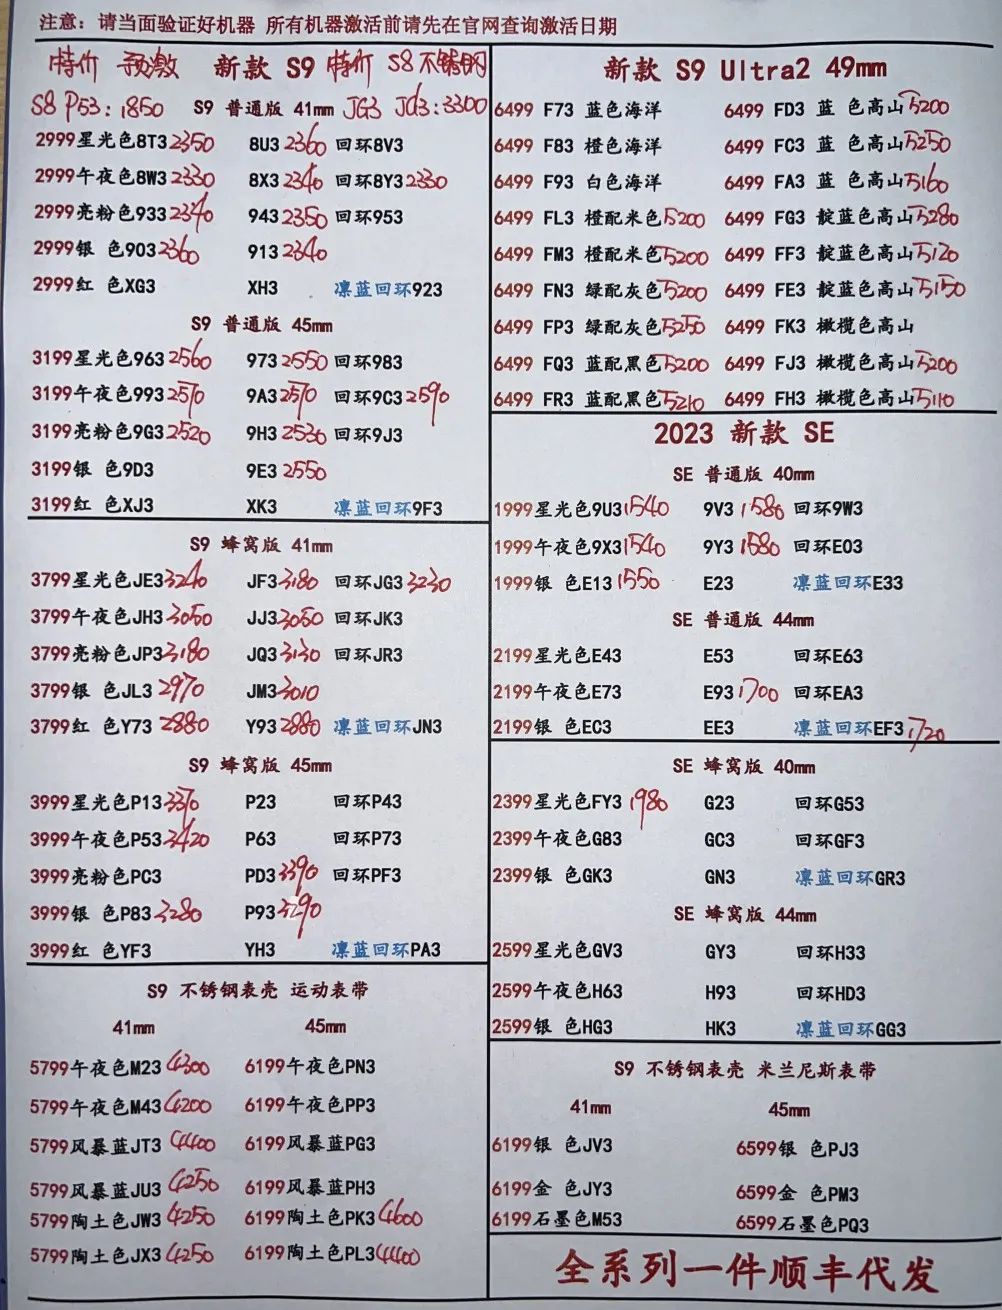 注意：请当面验证好机器 所有机器激活前请先在官网查询激活日期
特价 预激 新款 S9 特价 S8不锈钢
S8 P53:1850 S9 普通版 41mm JG3 JJ3:3300
2999星光色8T3 2350 8U3 2360 回环8V3
2999午夜色8W3 2330 8X3 2340 回环8Y3 2330
2999亮粉色933 2340 943 2350 回环953
2999银 色903 2360 913 2340
2999红 色XG3 XH3 凛蓝回环923
S9 普通版 45mm
3199星光色963 2560 973 2550 回环983
3199午夜色993 2570 9A3 2570 回环9C3 2590
3199亮粉色9G3 2520 9H3 2530 回环9J3
3199银 色9D3 9E3 2550
3199红 色XJ3 XK3 凛蓝回环9F3
S9 蜂窝版 41mm
3799星光色JE3 3240 JF3 3180 回环JG3 3230
3799午夜色JH3 3050 JJ3 3050 回环JK3
3799亮粉色JP3 3180 JQ3 3130 回环JR3
3799银 色JL3 2970 JM3 3010
3799红 色Y73 2880 Y93 2880 凛蓝回环JN3
S9 蜂窝版 45mm
3999星光色P13 3370 P23 回环P43
3999午夜色P53 3420 P63 回环P73
3999亮粉色PC3 PD3 3390 回环PF3
3999银 色P83 3280 P93 3290
3999红 色YF3 YH3 凛蓝回环PA3
S9 不锈钢表壳 运动表带
41mm 45mm
5799午夜色M23 4300 6199午夜色PN3
5799午夜色M43 4200 6199午夜色PP3
5799风暴蓝JT3 4400 6199风暴蓝PG3
5799风暴蓝JU3 4250 6199风暴蓝PH3
5799陶土色JW3 4250 6199陶土色PK3 4600
5799陶土色JX3 4250 6199陶土色PL3 4400
新款 S9 Ultra2 49mm
6499 F73 蓝色海洋 6499 FD3 蓝 色高山 5200
6499 F83 橙色海洋 6499 FC3 蓝 色高山 5250
6499 F93 白色海洋 6499 FA3 蓝 色高山 5160
6499 FL3 橙配米色 5200 6499 FG3 靛蓝色高山 5280
6499 FM3 橙配米色 5200 6499 FF3 靛蓝色高山 5120
6499 FN3 绿配灰色 5200 6499 FE3 靛蓝色高山 5150
6499 FP3 绿配灰色 5250 6499 FK3 橄榄色高山
6499 FQ3 蓝配黑色 5200 6499 FJ3 橄榄色高山 5200
6499 FR3 蓝配黑色 5210 6499 FH3 橄榄色高山 5110
2023 新款 SE
SE 普通版 40mm
1999星光色9U3 1540 9V3 1580 回环9W3
1999午夜色9X3 1540 9Y3 1580 回环E03
1999银 色E13 1550 E23 凛蓝回环E33
SE 普通版 44mm
2199星光色E43 E53 回环E63
2199午夜色E73 E93 1700 回环EA3
2199银 色EC3 EE3 凛蓝回环EF3 1720
SE 蜂窝版 40mm
2399星光色FY3 1980 G23 回环G53
2399午夜色G83 GC3 回环GF3
2399银 色GK3 GN3 凛蓝回环GR3
SE 蜂窝版 44mm
2599星光色GV3 GY3 回环H33
2599午夜色H63 H93 回环HD3
2599银 色HG3 HK3 凛蓝回环GG3
S9 不锈钢表壳 米兰尼斯表带
41mm 45mm
6199银 色JV3 6599银 色PJ3
6199金 色JY3 6599金 色PM3
6199石墨色M53 6599石墨色PQ3
全系列一件顺丰代发